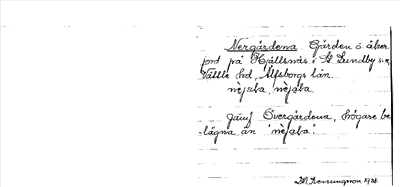 Nergårdena Gården o. åker
jord på Hjällsnäs i St Lundby s:n
Vättle hd, Älfsborgs län.
nèjaba, nèjaba
Jämf Övergårdena, högare be-
lägna än 'nèjaba'.
1924